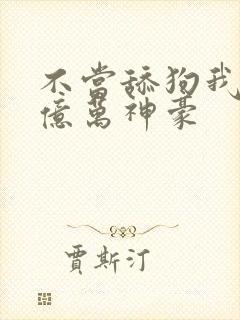 不當舔狗我
億萬神豪
賈斯汀